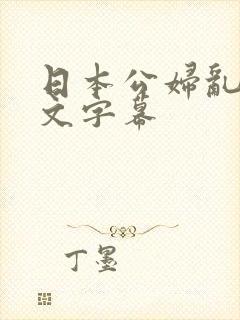 日本公婦亂
文字幕
丁墨